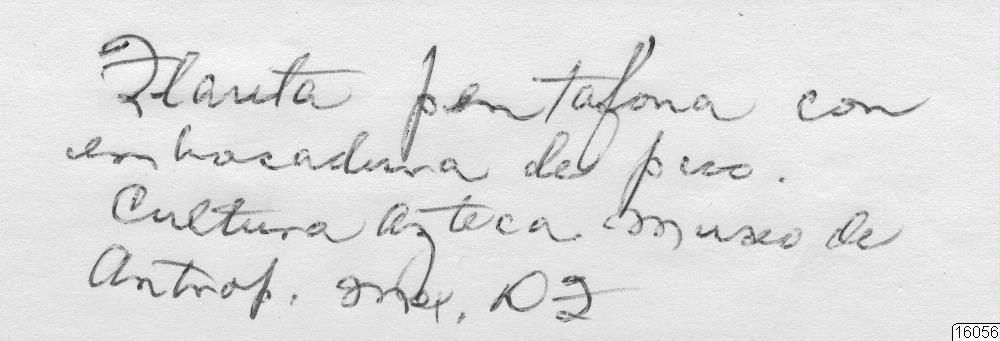 Flauta pentáfona con
embocadura de pico.
Cultura Azteca. Museo de
Antrop. Mex. DF
16056